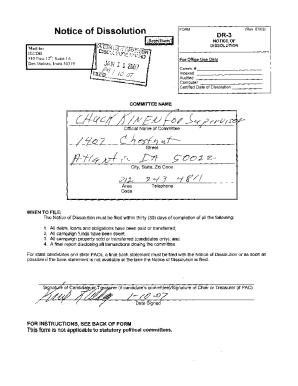 Notice of Dissolution
FORM
(Rev. 07/03)
DR-3
NOTICE OF
DISSOLUTION
Mail to:
IECDB
510 East 12th, Suite 1A
Des Moines, Iowa 50319
JAN 11 2007
For Office Use Only
Comm. #
Indexed
Audited
Computer
Certified Date of Dissolution
COMMITTEE NAME
Chuck Rinen For Supervisor
Official Name of Committee
1407 Chestnut
Street
Atlantic IA 50022
City, State, Zip Code
712 243 4811
Area Code
Telephone
WHEN TO FILE:
The Notice of Dissolution must be filed within thirty (30) days of completion of all the following:
1. All debts, loans and obligations have been paid or transferred;
2. All campaign funds have been spent;
3. All campaign property sold or transferred (candidates only); and
4. A final report disclosing all transactions closing the committee.
For state candidates and state PACs, a final bank statement must be filed with the Notice of Dissolution or as soon as
possible if the bank statement is not available at the time the Notice of Dissolution is filed.
Signature of Candidate or Treasurer (if candidate's committee)/Signature of Chair or Treasurer (if PAC)
1-10-07
Date Signed
FOR INSTRUCTIONS, SEE BACK OF FORM
This form is not applicable to statutory political committees.